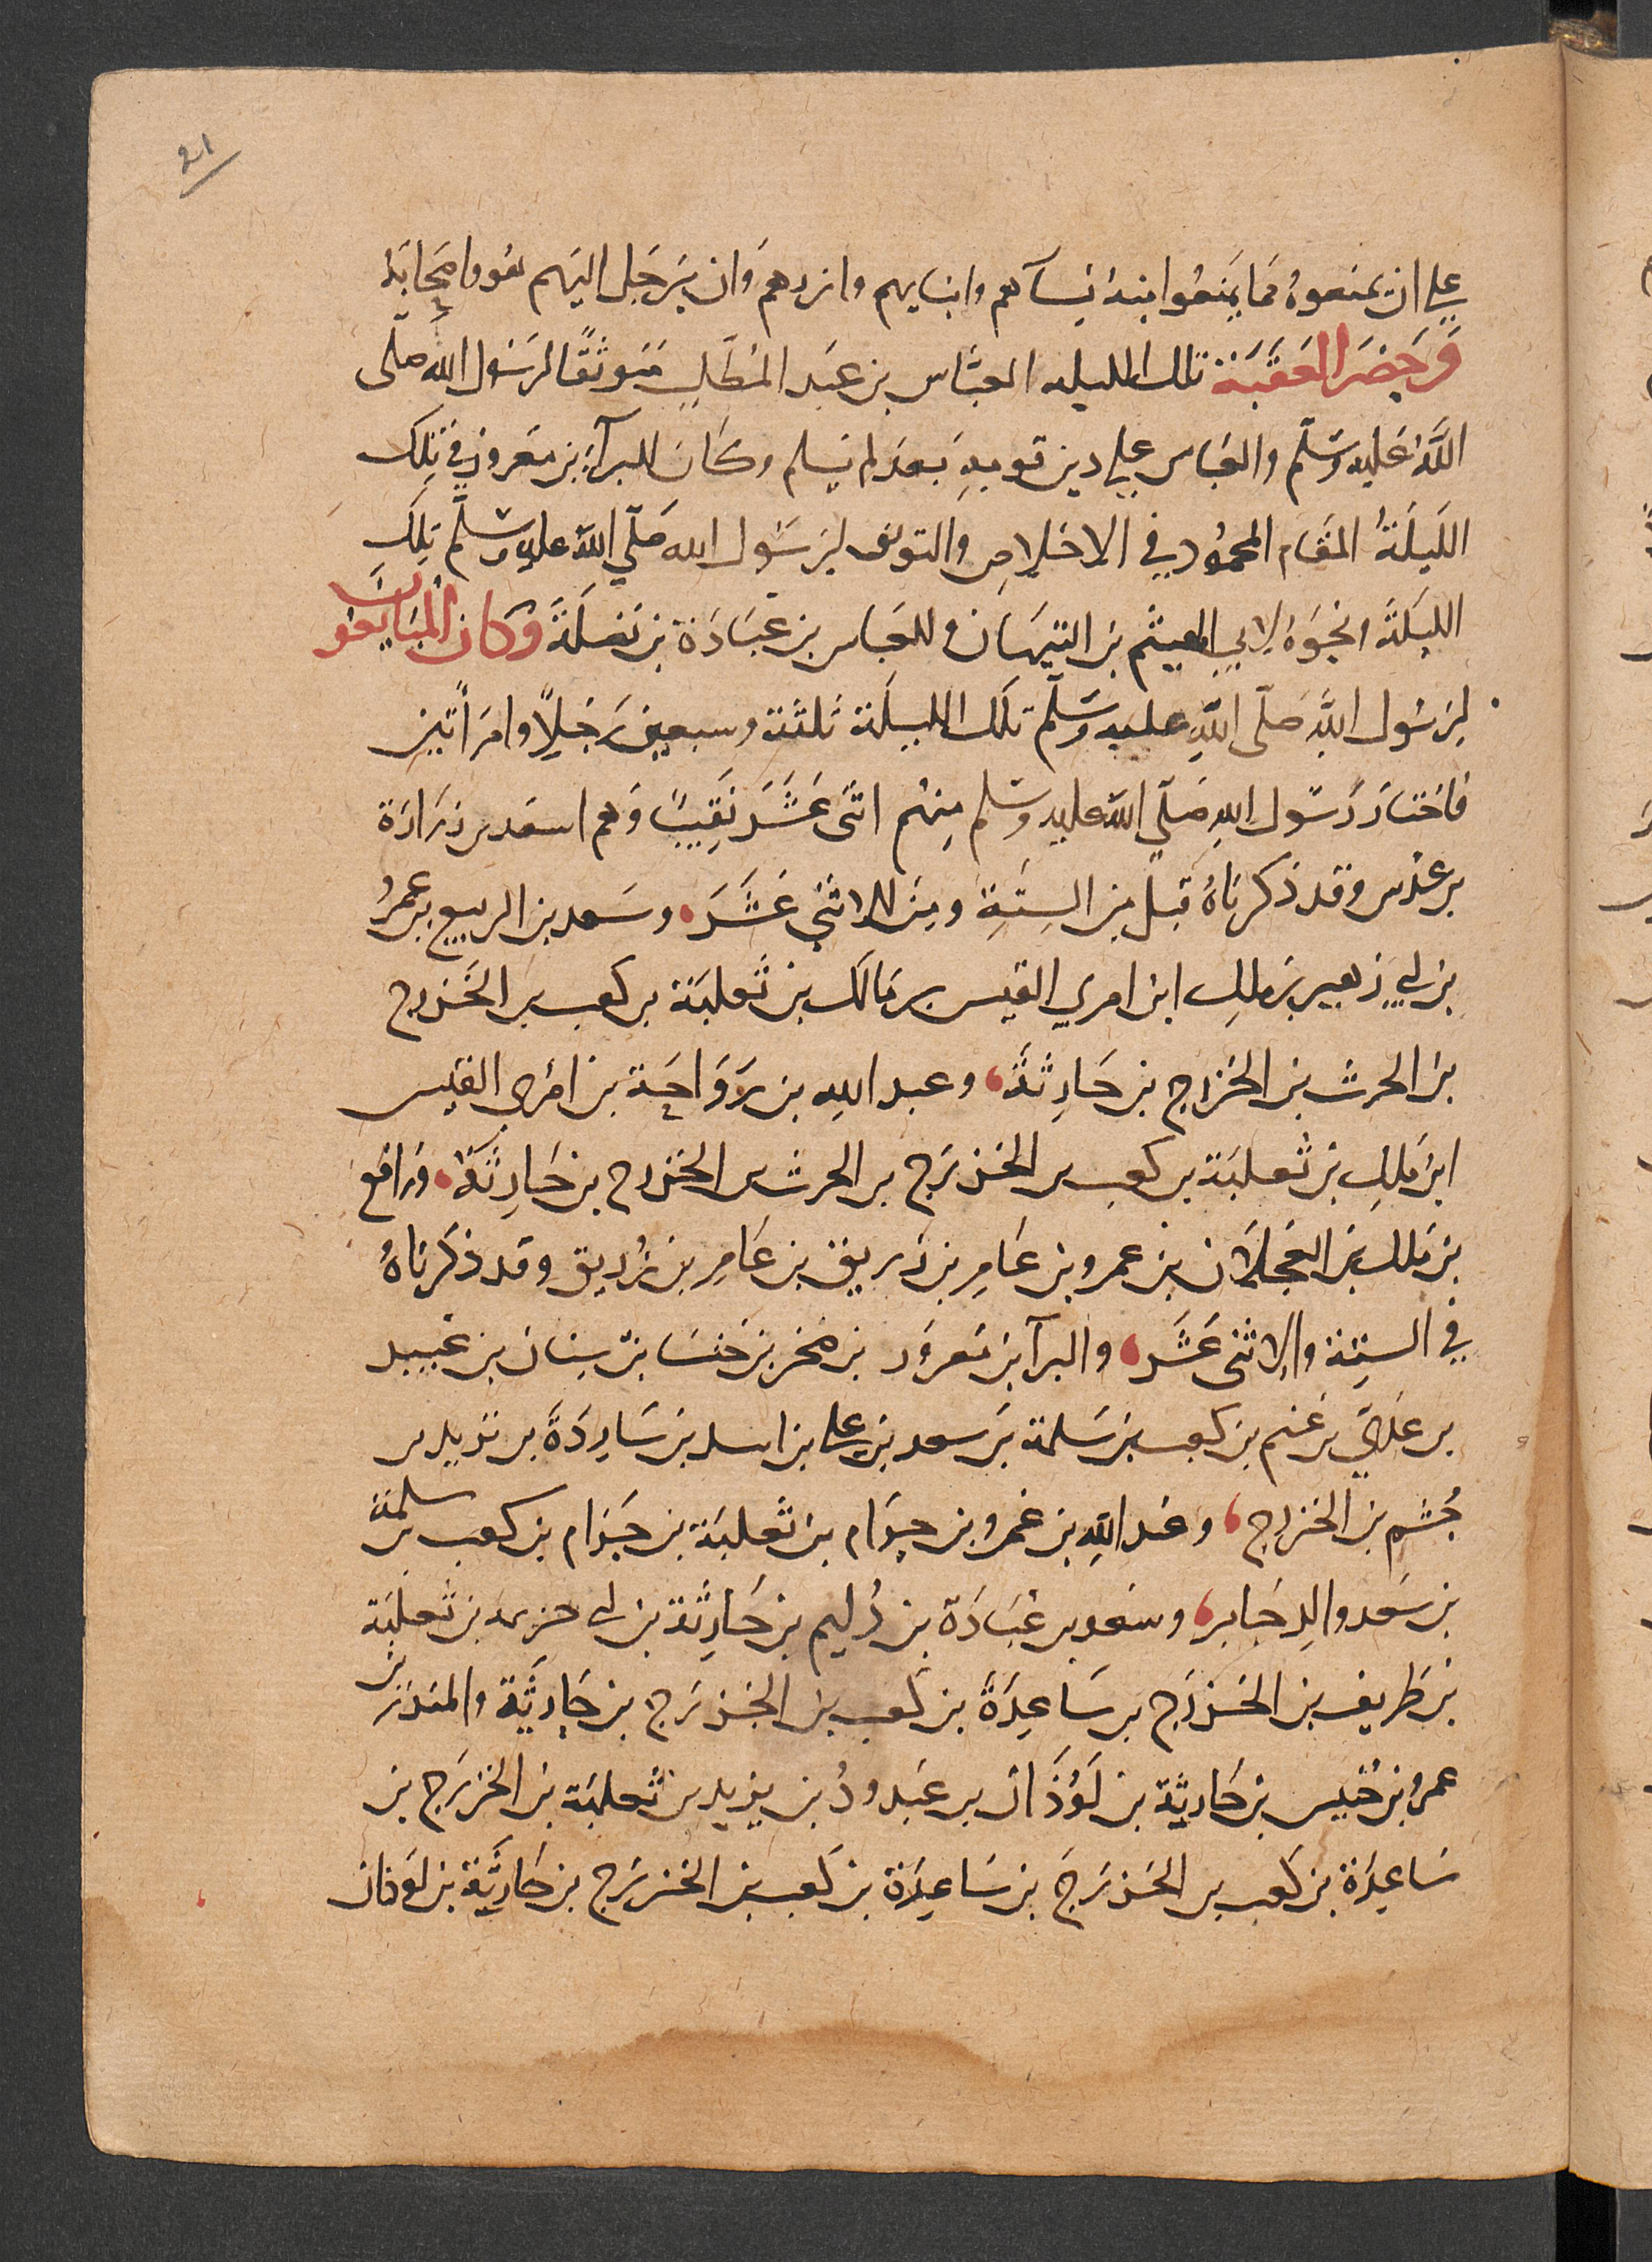 21
علي ان يمنعوه مما يمنعوا منه نسآهم وابنايهم وازرهم وان يرحل اليهم هو واصحابه
وحضر العقبة تلك الليله العباس بن عبد المطلب متوثقا لرسول الله صلى
الله عليه وسلم والعباس علي دين قومه بعد لم يسلم وكان للبرآء بن معرور في تلك
الليلة المقام المحمود في الاخلاص والتوثق لرسول الله صلي الله عليه وسلم تلك
الليلة ونحوه لابي الهيثم بن التيهان وللعباس بن عبادة بن نضلة وكان المبايعون
لرسول الله صلى الله عليه وسلم تلك الليلة ثلثة وسبعين رجلا وامرأتين
فاختار رسول الله صلي الله عليه وسلم منهم اثنى عشر نقيبا وهم اسعد بن زرارة
بن عدس وقد ذكرناه قبل من الستة ومن الاثني عشر، وسعد بن الربيع بن عمرو
بن ابي زهير بن ملك ابن امري القيس بن مالك بن ثعلبة بن كعب بن الخزرج
بن الحرث بن الخزرج بن حارثة، وعبد الله بن رواحة بن امرى القيس
ابن ملك بن ثعلبة بن كعب بن الخزرج بن الحرث بن الخزرج بن حارثة، ورافع
بن ملك بن العجلان بن عمرو بن عامر بن زريق بن عامر بن زريق وقد ذكرناه
في الستة والاثنى عشر، والبرآ بن معرور بن صخر بن خنسا بن سنان بن عبيد
بن عدي بن غنم بن كعب بن سلمة بن سعد بن علي بن اسد بن ساردة بن تزيد بن
جشم بن الخزرج، وعبد الله بن عمرو بن حرام بن ثعلبة بن حرام بن كعب بن سلمة
بن سعد والد جابر، وسعد بن عبادة بن دليم بن حارثة بن ابي حزيمه بن ثعلبة
بن طريف بن الخزرج بن ساعدة بن كعب بن الخزرج بن حارثة والمنذر بن
عمرو بن خنيس بن حارثة بن لوذان بن عبد ود بن يزيد بن ثعلبة بن الخزرج بن
ساعدة بن كعب بن الخزرج بن ساعدة بن كعب بن الخزرج بن حارثة بن لوذان